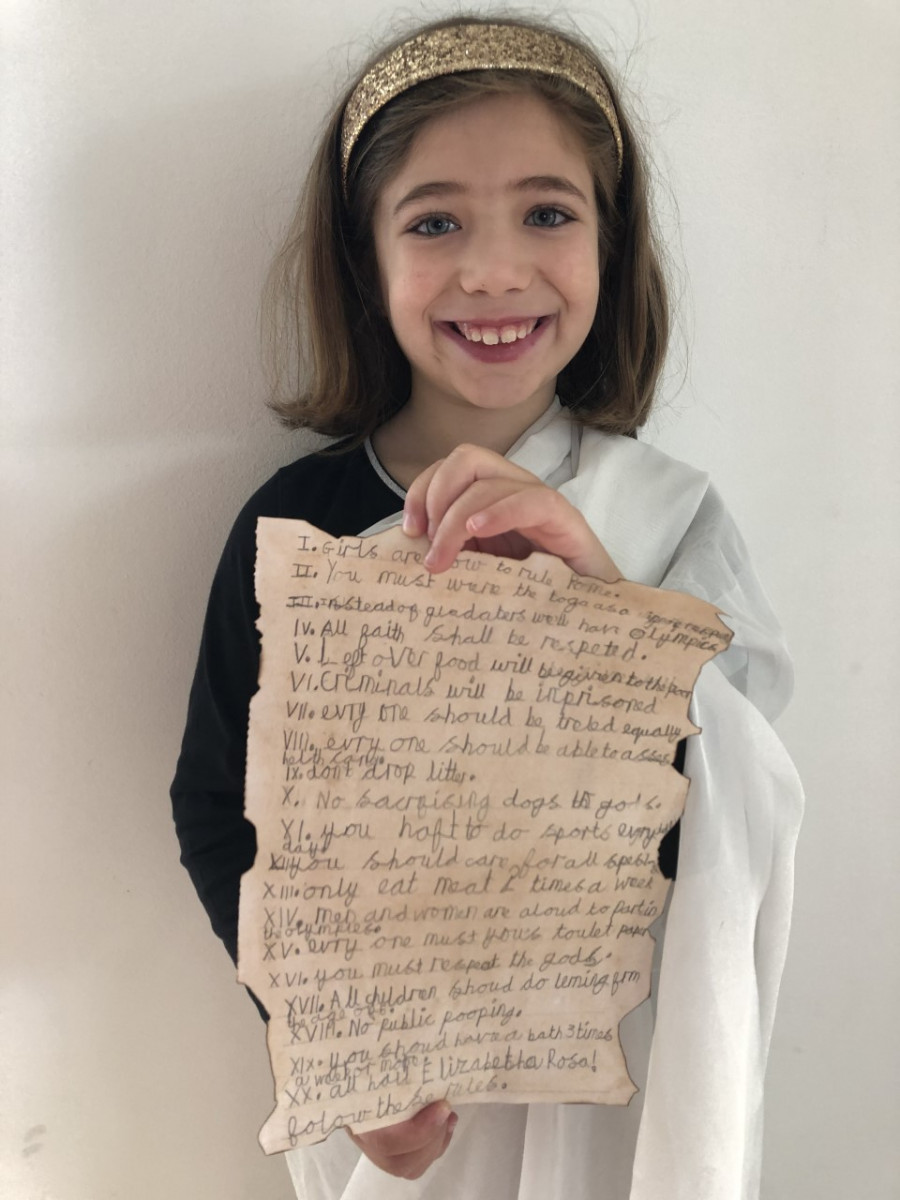 I. Girls are now to rule Rome.
II. You must were the toga as a
III. insteadof gladaters we'll have Olympics
IV. All faith shall be respeted.
V. Left over food will be given to the poor
VI. Criminals will be inprisoned
VII. evry one should be treted equally
VIII. evry one should be able to asses
helth care.
IX. don't drop litter.
X. No sacrifising dogs to gods.
XI. you haft to do sports evry
day.
XII. you should care for all
XIII. only eat meat 2 times a week
XIV. men and women are aloud to part in
the olympics.
XV. evry one must yous toulet paper
XVI. you must respeat the gods.
XVII. All children shoud do lerning frm
the age of
XVIII. No public pooping.
XIX. you shoud have a bath 3 times
a week or more.
XX. all hail Elizabetha Rosa!
folow these rules.